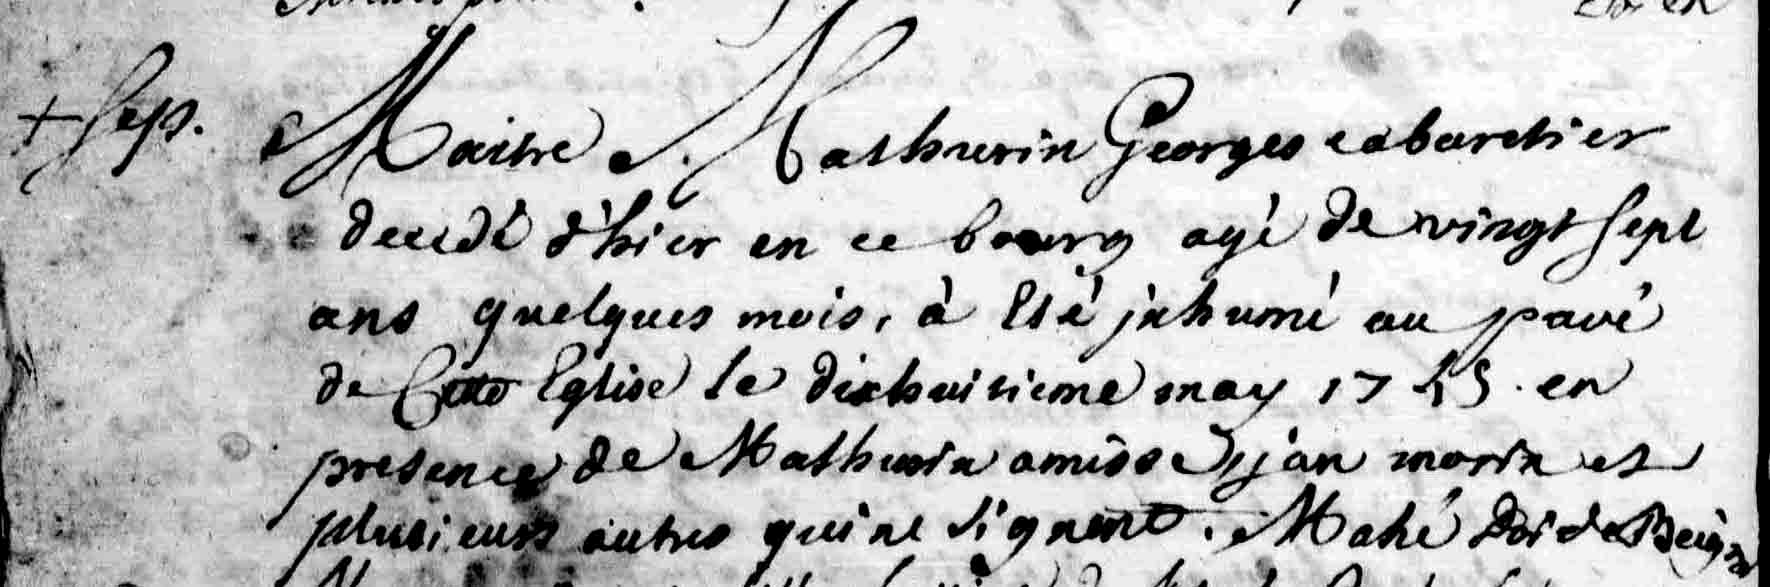 + Sep. Maitre Mathurin Georges cabaretier
decedé d'hier en ce bourg agé de vingt sept
ans quelques mois, à Eté jnhumé au pavé
de Cette Eglise le dixhuitieme may 1745. en
presence de Mathurin amisse, jan morin et
plusieurs autres qui ne signent. Mahé